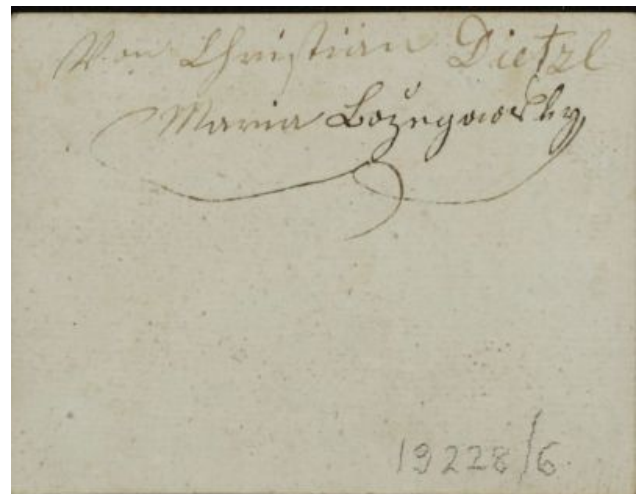 Von Christian Dietzl
Maria Božegowsky
19228/6